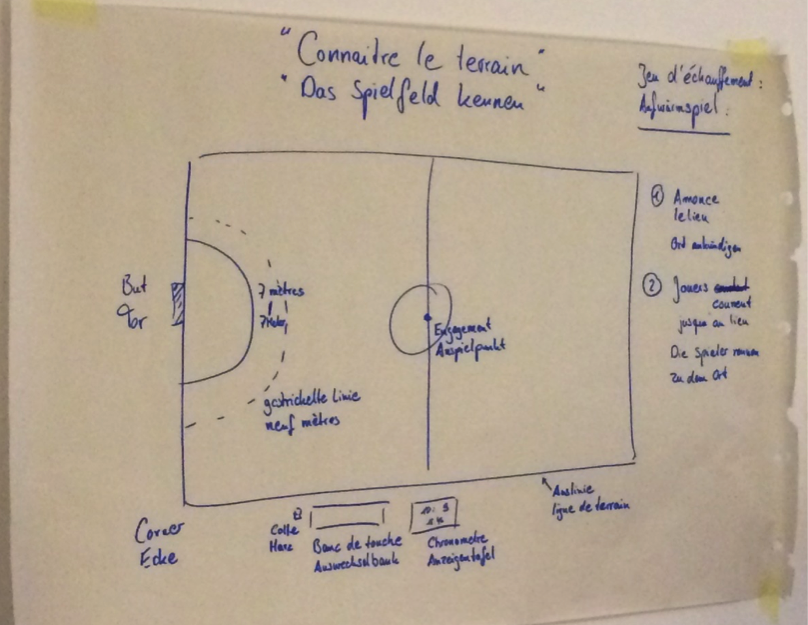 "Connaitre le terrain"
"Das Spielfeld kennen"
Jeu d'échauffement :
Aufwärmspiel :
① Annonce
le lieu
Ort ankündigen
② Jouers
courent
jusque au lieu
Die Spieler rennen
zu dem Ort
But
Tor
7 mètres
7 Meter
Engagement
Anspielpunkt
gestrichelte Linie
neuf mètres
Corner
Ecke
Colle
Harz
Banc de touche
Auswechselbank
Chronometre
Anzeigentafel
Auslinie
ligne de terrain